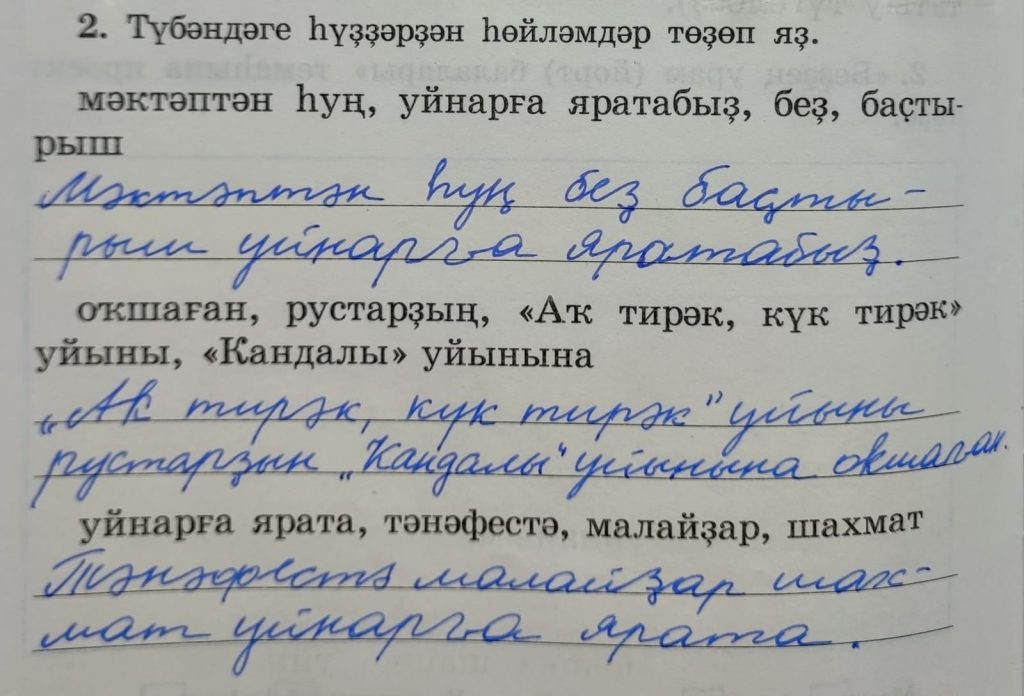 2. Түбәндәге һүҙҙәрҙән һөйләмдәр төҙөп яҙ.
мәктәптән һуң, уйнарға яратабыҙ, беҙ, баҫты-
рыш
Мәктәптән һуң беҙ баҫты-
рыш уйнарға яратабыҙ.
оҡшаған, рустарҙың, «Аҡ тирәк, күк тирәк»
уйыны, «Кандалы» уйынына
„Аҡ тирәк, күк тирәк" уйыны
рустарҙың „Кандалы" уйынына оҡшаған.
уйнарға ярата, тәнәфестә, малайҙар, шахмат
Тәнәфестә малайҙар шах-
мат уйнарға ярата.